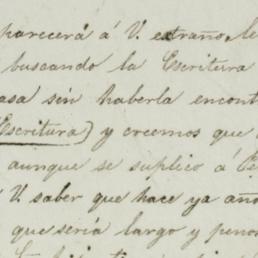 parecerá á V. extraño, le
buscando la Escritura
asa sin haberla encont
Escritura) y creemos que
aunque se suplico á
V. saber que hace ya año
que sería largo y peno